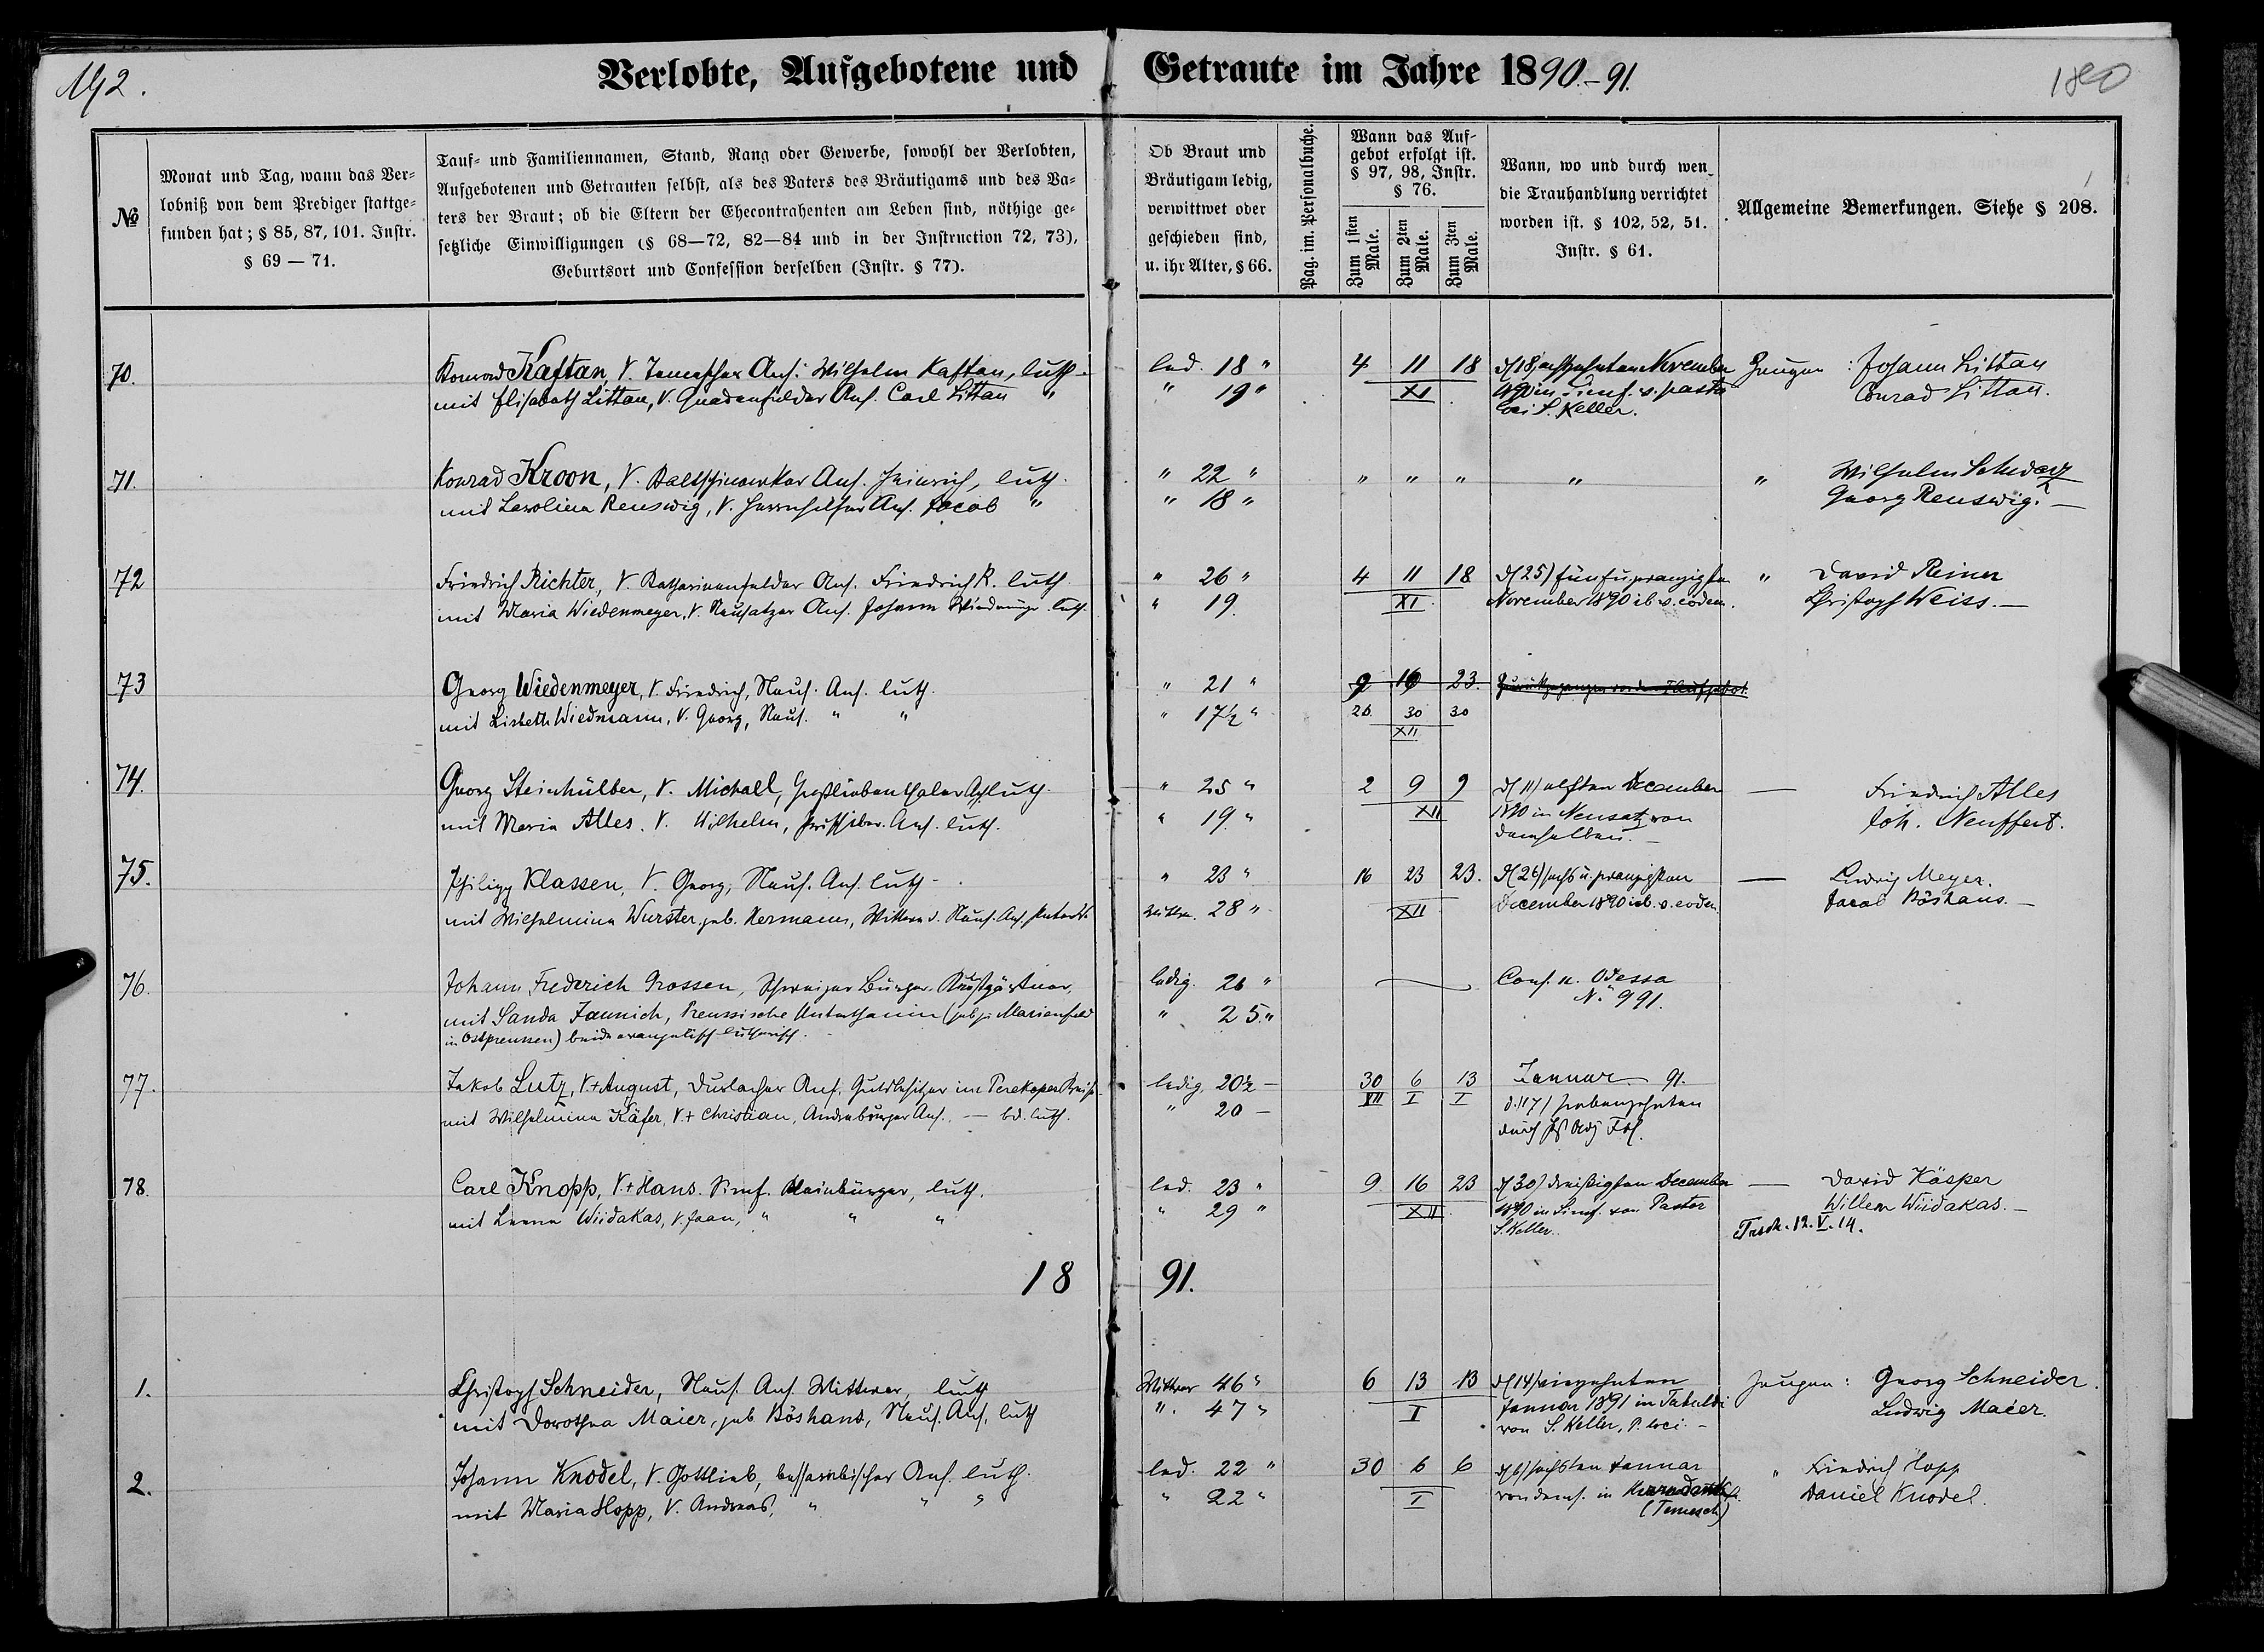 192.
Verlobte, Aufgebotene und Getraute im Jahre 1890.-91.
180
№
Monat und Tag, wann das Ver-
lobniß von dem Prediger stattge-
funden hat; § 85, 87, 101. Instr.
§ 69 — 71.
Tauf- und Familiennamen, Stand, Rang oder Gewerbe, sowohl der Verlobten,
Aufgebotenen und Getrauten selbst, als des Vaters des Bräutigams und des Va-
ters der Braut; ob die Eltern der Ehecontrahenten am Leben sind, nöthige ge-
setzliche Einwilligungen (§ 68—72, 82—84 und in der Instruction 72, 73),
Geburtsort und Confession derselben (Instr. § 77).
Ob Braut und
Bräutigam ledig,
verwittwet oder
geschieden sind,
u. ihr Alter, § 66.
Pag. im. Personalbuche.
Wann das Auf-
gebot erfolgt ist.
§ 97, 98, Instr.
§ 76.
Zum 1sten Male.
Zum 2ten Male.
Zum 3ten Male.
Wann, wo und durch wen
die Trauhandlung verrichtet
worden ist. § 102, 52, 51.
Instr. § 61.
Allgemeine Bemerkungen. Siehe § 208.
70. Konrad Kaftan, V. Temescher Ans. Wilhelm Kaftan, luth. led. 18 " 4 11 18 d/18/achtzehnten November Zeugen: Johann Littau
mit Elisabeth Littau, V. Gnadenfelder Ans. Carl Littau " " 19 " XI 1890 in Simf. v. pastor Conrad Littau.
loci S. Keller.
71. Konrad Kroon, V. Ans. Heinrich, luth. " 22 " " " " " " Wilhelm Schwarz
mit Karolina Renswig, V. Ans. Jacob " " 18 " Georg Renswig. —
72 Friedrich Richter, V. Katharinenfelder Ans. Friedrich R. luth. " 26 " 4 11 18 d/25/fünfu.zwanzigsten " David Reiner
mit Maria Wiedenmeyer, V. Neusatzer Ans. Johann luth. " 19. XI November 1890 ib. v. eodem. Christoph Weiss. —
73 Georg Wiedenmeyer, V. Friedrich, Neus. Ans. luth. " 21 " 9 16 23.
mit Lisbeth Wiedmann, V. Georg, Neus. " " " 17½ " 26. 30 30
XII
74. Georg Steinhülber, V. Michael, Großliebenthaler Ans. luth. " 25 " 2 9 9 d/11/elften December — Friedrich Alles
mit Maria Alles, V. Wilhelm, Ans. luth. " 19. " XII 1890 in Neusatz von Joh. Neuffert.
demselben. —
75. Philipp Klassen, V. Georg, Neus. Ans. luth. " 23 " 16 23 23. d/26/sechs u. zwanzigsten — Ludwig Meyer.
mit Wilhelmina Wurster, geb. Hermann, Wittwe d. Neus. Ans. Wittwe. 28 " XII December 1890 ib. v. eodem. Jacob Böshans. —
76. Johann Frederich Grossen, Schweizer Bürger, Kunstgärtner, ledig. 26 " Conf. n. Odessa
mit Sanda Jannich, Preussische Unterthanin (geb. zu Marienfeld " 25. " № 991.
in Ostpreussen) beide evangelisch-lutherisch. —
77. Jakob Lutz, V.+August, Durlacher Ans. Gutsbesitzer im Perekoper Kreise ledig. 20½ — 30 6 13 Januar 91.
mit Wilhelmina Käfer, V.+ Christian, Ans. — bd. luth. " 20 — XII I I d./17/siebenzehnten
durch Adj.
78. Carl Knopp, V.+Hans. Simf. Kleinbürger, luth. led. 23 " 9. 16 23 d/30/dreißigsten December — David Käsper
mit Leena Wiidakas, V. Jaan, " " " " 29 " XII 1890 in Simf. von Pastor Willem Wiidakas. —
S. Keller. 12. V. 14.
18 91.
1. Christoph Schneider, Neus. Ans. Wittwer, luth. Wittwer 46 " 6 13 13 d/14/vierzehnten Zeugen: Georg Schneider.
mit Dorothea Maier, geb. Böshans, Neus. Ans. luth " 47 " I Januar 1891 in Ludwig Maier.
von S. Keller, P. loci. —
2. Johann Knodel, V. Gottlieb, bessarabischer Ans. luth. led. 22 " 30 6 6 d/6/sechsten Januar " Friedrich Hopp
mit Maria Hopp, V. Andreas, " " " " 22 " I von dems. in Daniel Knodel.
(Temesch)